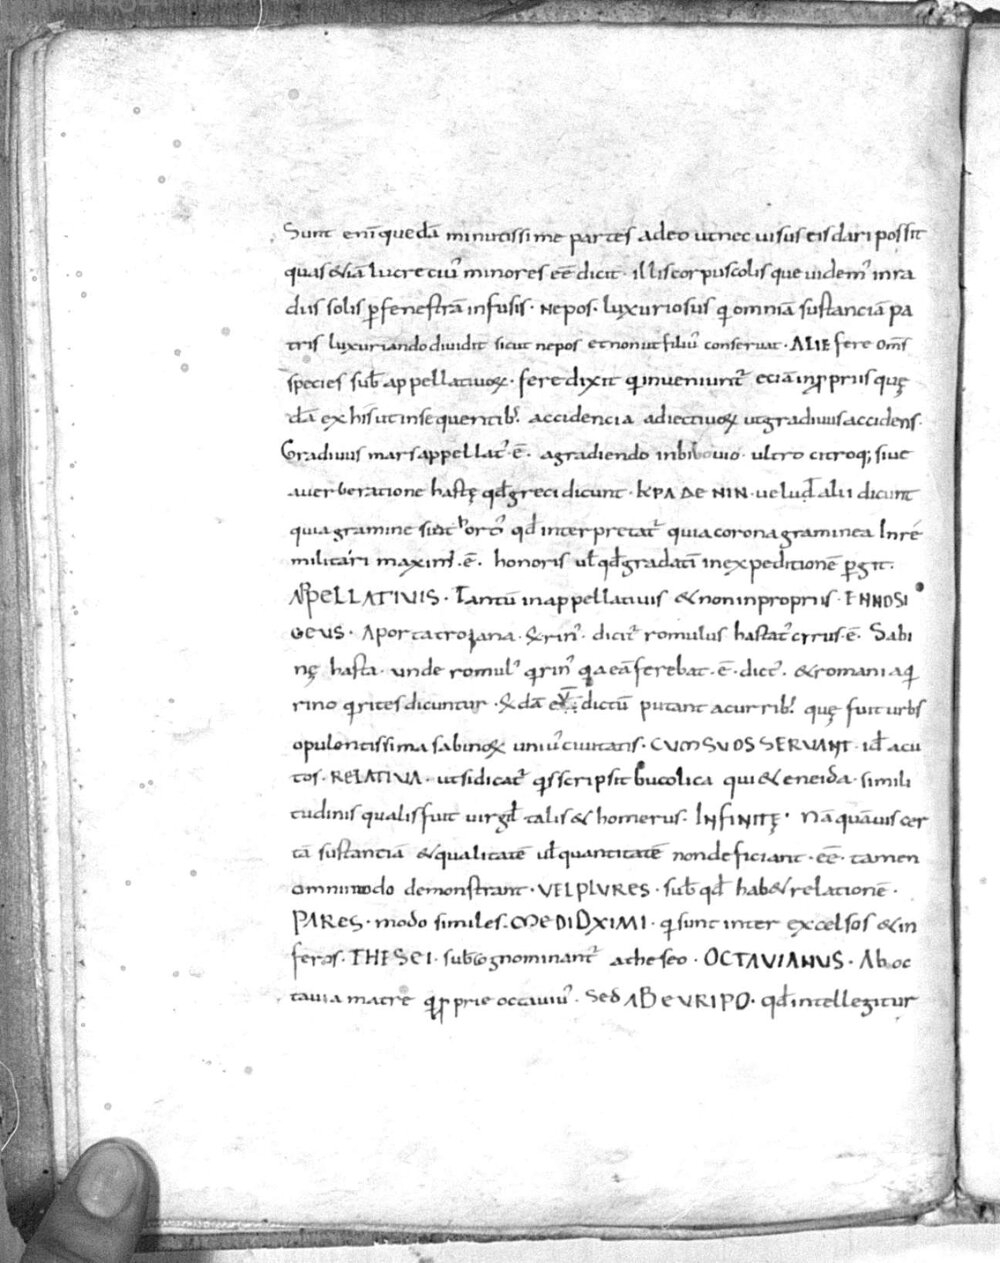 Sunt enī quedā minutissime partes adeo ut nec uisus eis dari possit
quas &iā lucreciu' minores eē dicit · illis corpuscolis que uidem' in ra
diis solis p fenestrā infusis · Nepos · luxuriosus q omniā sustanciā pa
tris luxuriando diuidit sicut nepos et non ut filiu' conseruat · ALIE fere oms
species sub appellatiuoꝝ · fere dixit q inueniunt' eciā in ppriis quę
dā ex his ut in sequentib; accidencia adiectiuoꝝ ut gradiuus accidens ·
Gradiuus mars appellat' · ē · a gradiendo in bibouio · ultro citroq; siue
a uerberatione hastę qđ greci dicunt · KPADENIN · uelud alii dicunt
quia gramine sit ort' qđ interpretat' quia corona graminea In re
militari maxim' · ē · honoris ul qđ gradatī in expeditionē pgit ·
APPELLATIVIS · Tantū in appellatiuis & non in propriis · ENNOSI
GEUS · A porta trojana · &rin' · dicit' romulus hastat' cyrus · ē · Sabi
nę hasta · unde romul' qrin' qa eā ferebat · ē · dict' · & romani a q
rino qrites dicuntur · &dā dictū putant a curribꝰ quę fuit urbs
opulentissima sabinoꝝ uniu' ciuitatis · CUM SUOS SERUANT · id acu
tos · RELATIVA · ut si dicat' qs scripsit bucolica qui & eneida · simili
tudinis qualis fuit uirgil' talis & homerus · INFINITĘ · Nā quāuis cer
tā sustanciā & qualitatē ul quantitatē non deficiant · eē · tamen
omnimodo demonstrant · VEL PLVRES · sub qđ hab& relationē ·
PARES · modo similes · MEDIOXIMI · q sunt inter excelsos & in
feros · THESEI · sub cognominant' a theseo · OCTAVIANUS · Ab oc
tauia matre q pprie octauiu' · Sed AB EVRIPO · qđ intellegitur